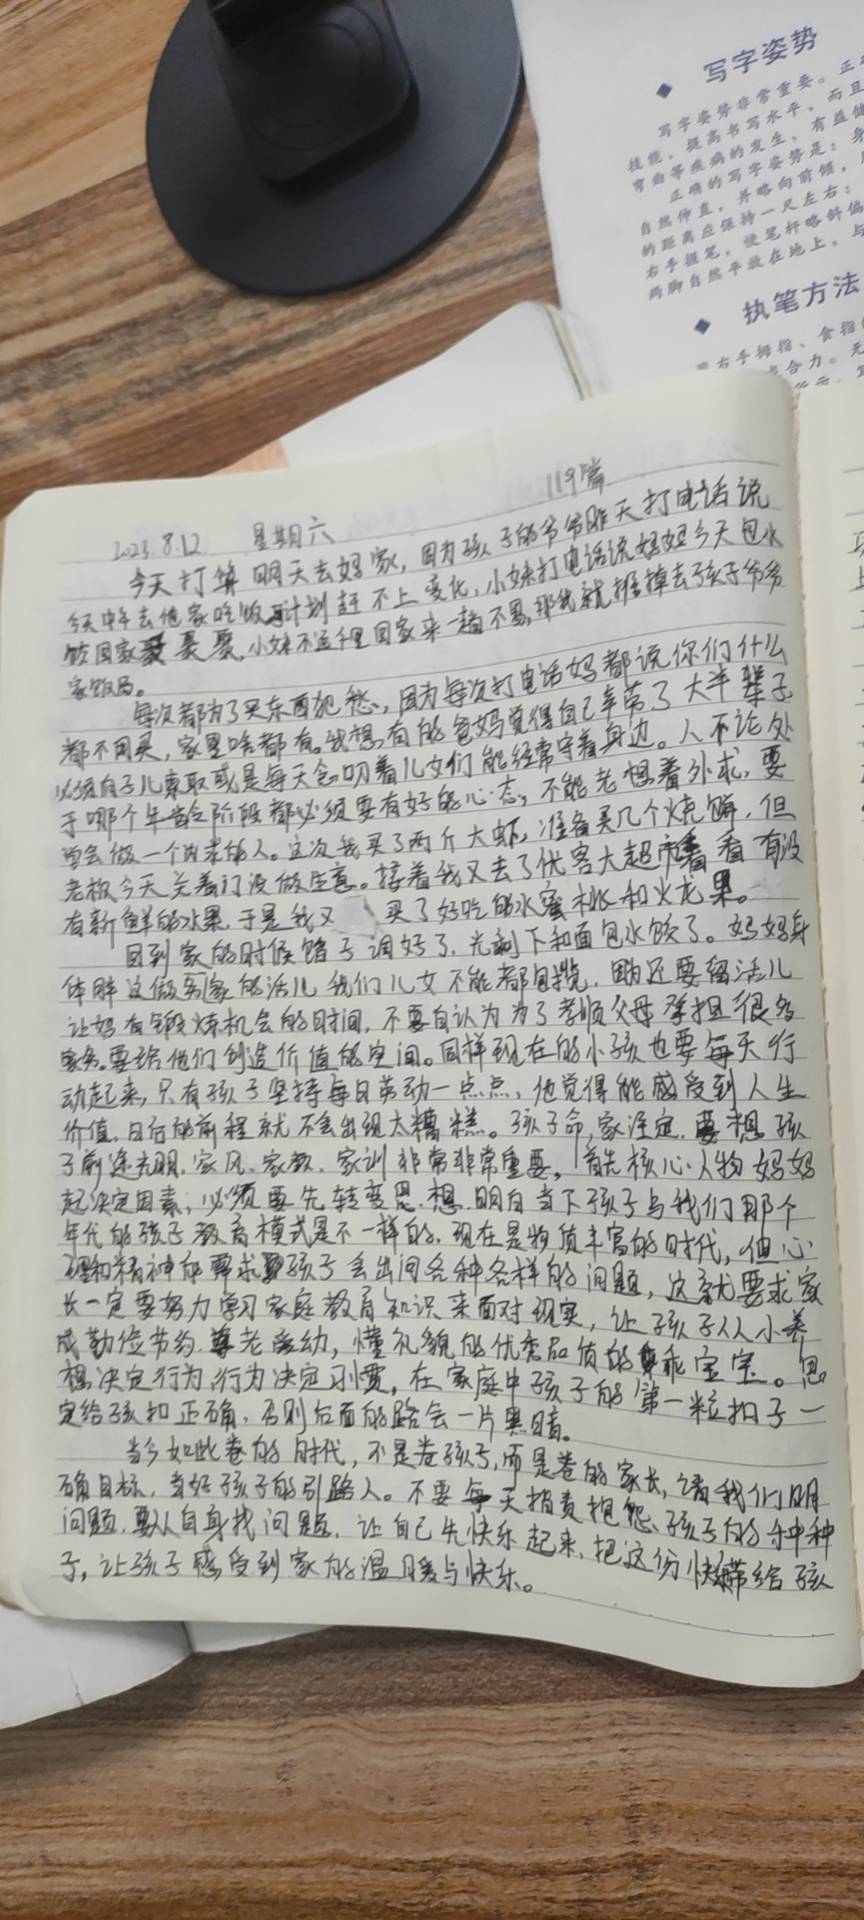 写字姿势
写字姿势非常重要。正
技能,提高书写水平,而且
弯曲等疾病的发生,有益健
正确的写字姿势是:身
自然伸直,并略向前倾,
的距离应保持一尺左右;
右手握笔,使笔杆略斜偏
两脚自然平放在地上,与
执笔方法
右手拇指、食指
合力。无
119篇
2023.8.12 星期六
今天打算明天去妈家,因为孩子的爷爷昨天打电话说
今天中午去他家吃饭,计划赶不上变化,小妹打电话说妈妈今天包水
饺回家聚聚。小妹不远千里回家来一趟不易,那我就推掉去孩子爷爷
家饭局。
每次都为了买东西犯愁,因为每次打电话妈都说你们什么
都不用买,家里啥都有。我想有的爸妈觉得自己辛苦了大半辈子
必须向子儿索取或是每天念叨着儿女们能经常守着身边。人不论处
于哪个年龄阶段都必须要有好的心态,不能老想着外求,要
学会做一个内求的人。这次我买了两斤大虾,准备买几个烧饼,但
老板今天关着门没做生意。接着我又去了优客大超市看看有没
有新鲜的水果,于是我又买了好吃的水蜜桃和火龙果。
回到家的时候馅子调好了,光剩下和面包水饺了。妈妈身
体胖这做家的活儿我们儿女不能都包揽,因为还要留活儿
让妈有锻炼机会的时间,不要自认为为了孝顺父母承担很多
家务。要给他们创造价值的空间。同样现在的小孩也要每天行
动起来,只有孩子坚持每日劳动一点点,他觉得能感受到人生
价值,日后的前程就不会出现太糟糕。孩子命,家注定,要想孩
子前途光明,家风、家教、家训非常非常重要,首先核心人物妈妈
起决定因素,必须要先转变思想,明白当下孩子与我们那个
年代的孩子教育模式是不一样的,现在是物质丰富的时代,但心
理和精神的要求孩子会出问各种各样的问题,这就要求家
长一定要努力学习家庭教育知识来面对现实,让孩子从小养
成勤俭节约、尊老爱幼,懂礼貌的优秀品质的乖宝宝。思
想决定行为,行为决定习惯,在家庭中孩子的第一粒扣子一
定给孩扣正确,否则后面的路会一片黑暗。
当今如此卷的时代,不是卷孩子,而是卷的家长,请我们明
确目标,当好孩子的引路人。不要每天指责抱怨、孩子的种种
问题,要从自身找问题,让自己先快乐起来,把这份快乐带给孩
子,让孩子感受到家的温暖与快乐。